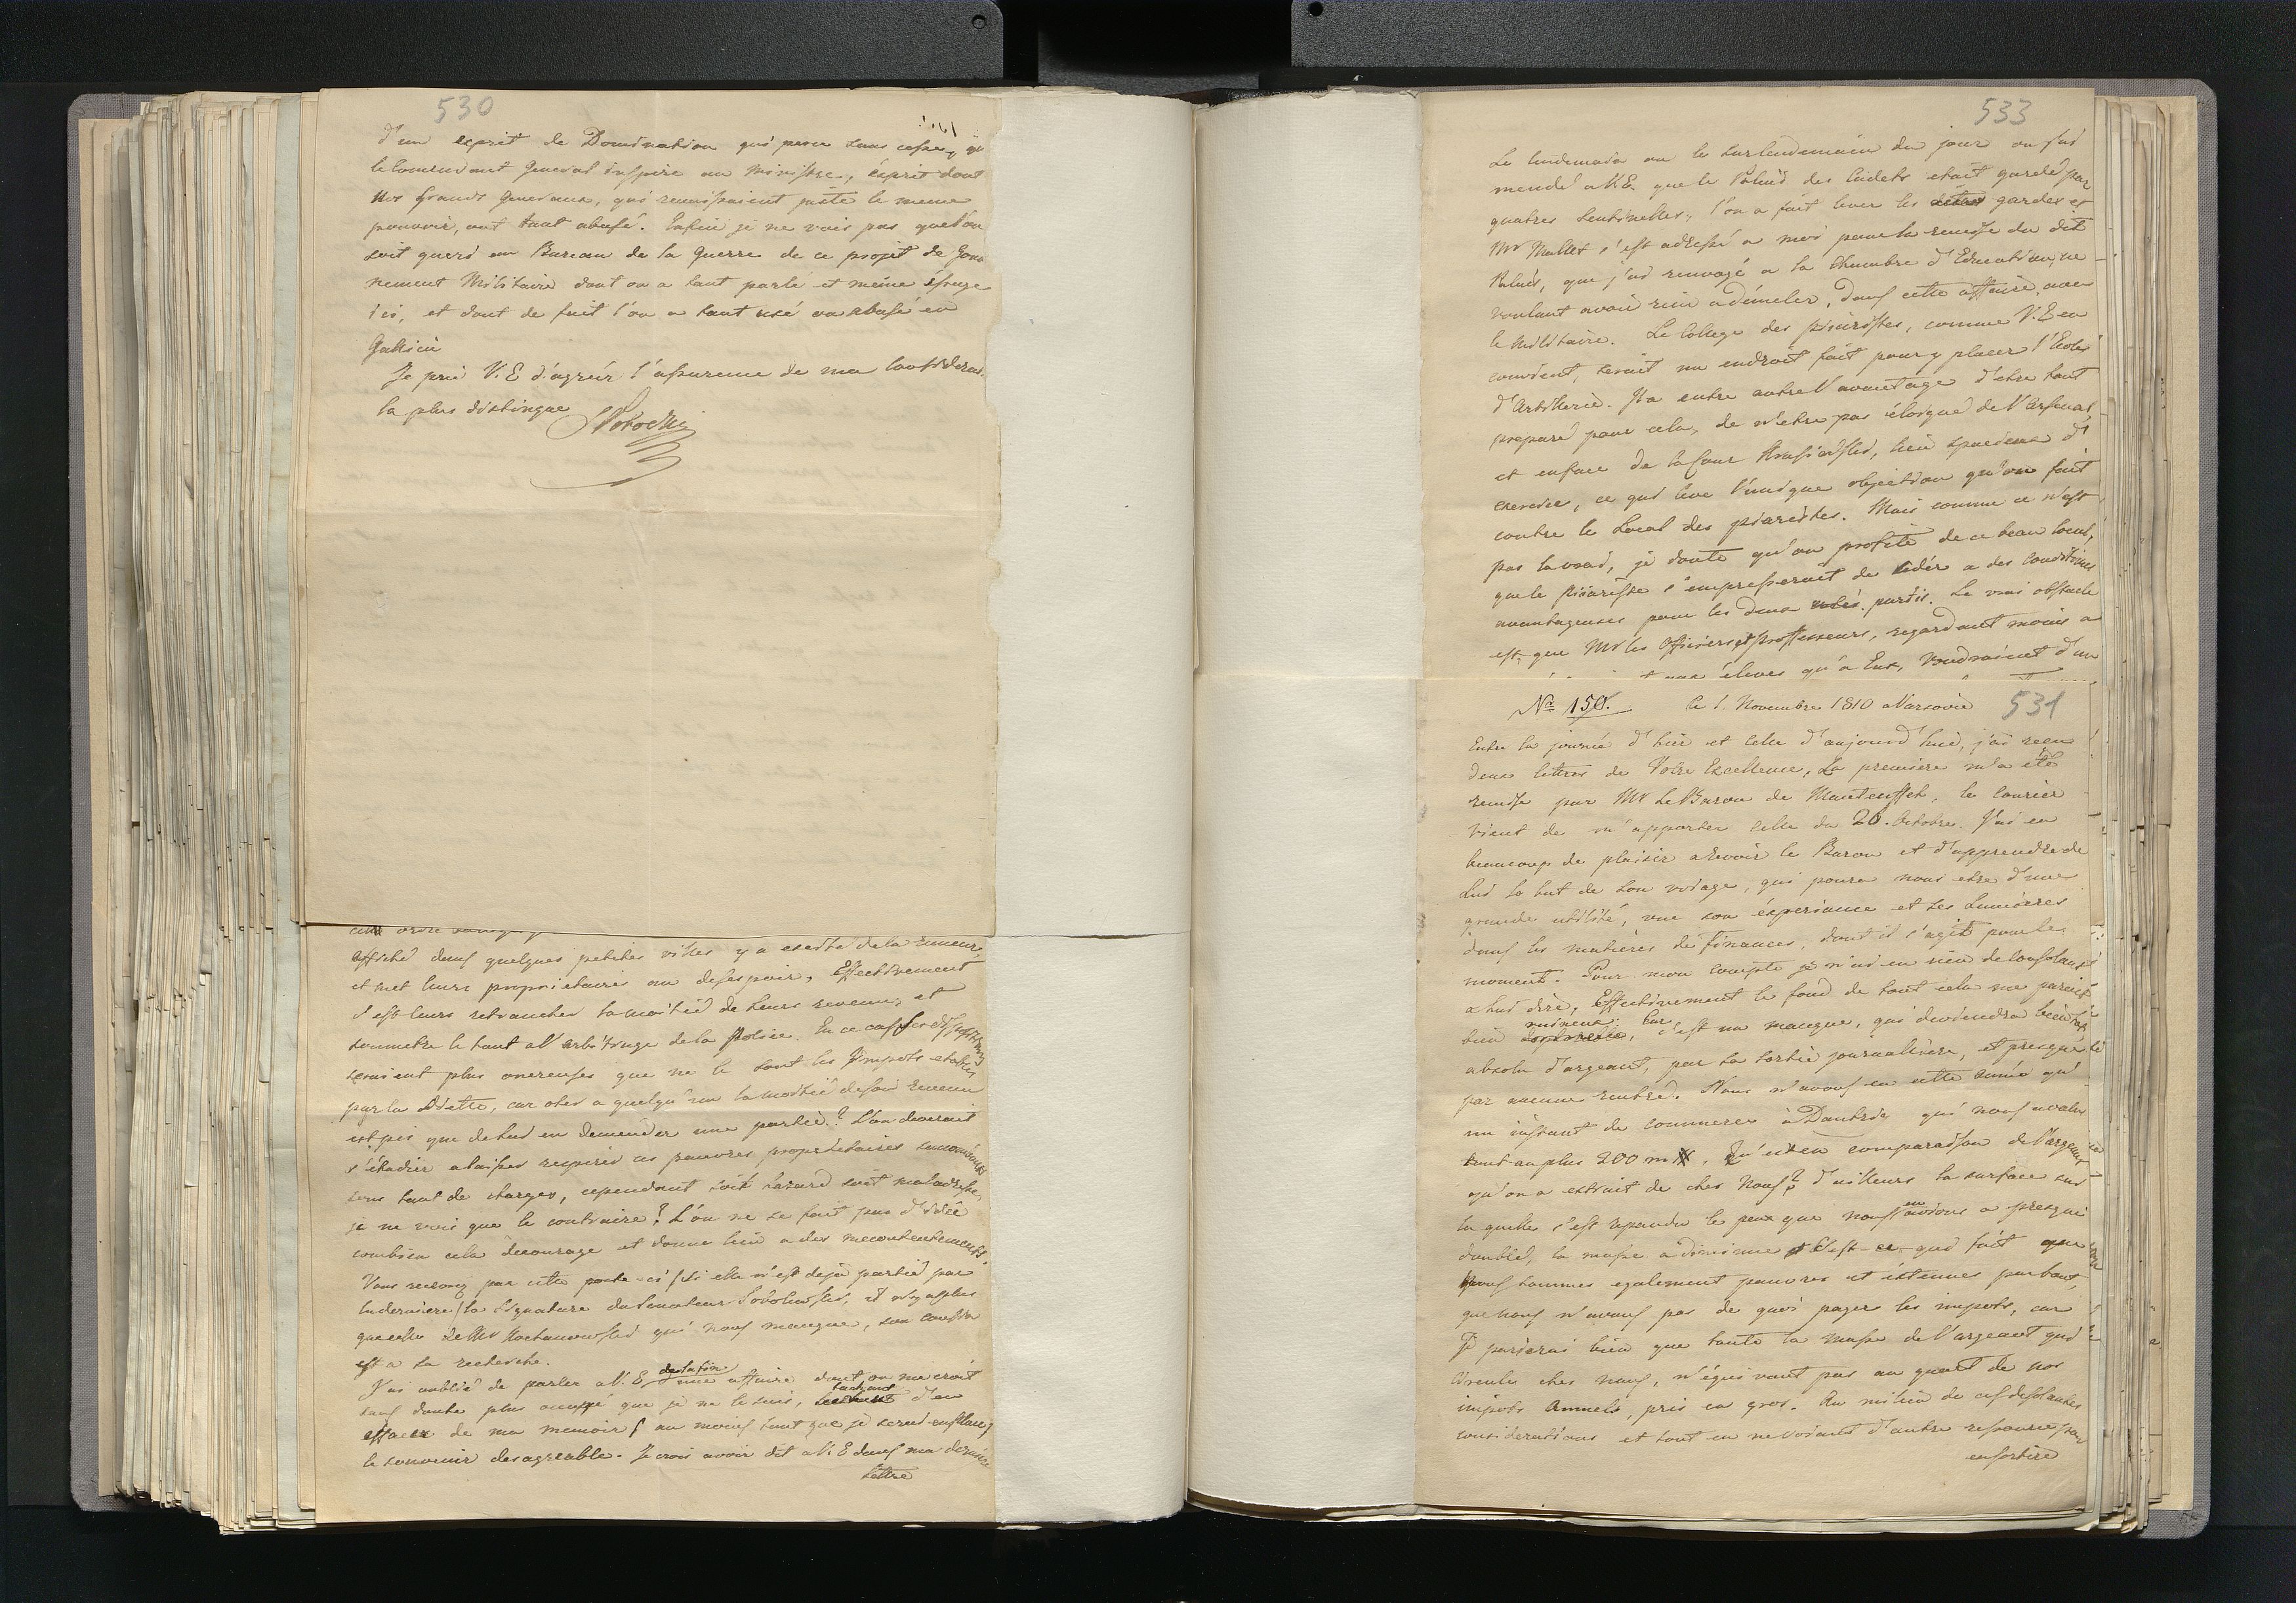 530
d'un esprit de Domination qui perce sans cesse, que
le Comendant General inspire au Ministre, ésprit dont
nos grands Generaux, qui reunissaient juste le meme
pouvoir, ont tant abusé. Enfin je ne vois pas quel'on
soit gueri au Bureau de la Guerre de ce projet de Gouv
nement Militaire dont on a tant parlé et même
ici, et dont de fait l'on a tant usé ou abusé en
Gallicie
Je prie V.E d'agréér l'assurence de ma Considerat.
la plus distingue
SPotocki
affiché dans quelques petites villes y a exsité de la rumeur,
et met leurs proprietaires au desespoir, Effectivement
s'est leurs retrancher la moitié de leurs revenus et
soumetre le tout a l'arbitrage de la Police. En ce cas
seroient plus onereuses que ne le sont les Impots etablis
par la Diette, car oter a quelqu'un la moitié de son revenu
est pis que de lui en demender une partie? L'on devrait
s'étudier a laisser respirer ces pauvres proprietaires
sous tant de charges, cependant soit hazard soit maladresse,
je ne vois que le contraire? L'on ne se fait pas d'idée
combien cela decourage et donne lieu a des mecontentements
Vous recevez par cette poste-ci (si elle n'est deja partie par
la derniere) la Signature du Senateur Sobolewski, il n'y a plus
que celle de Mr Kochanowski qui nous manque, son cousin
est a la recherche.
J'ai oublié de parler a V.E d'une affaire dont on me croit
sans doute plus occupé que je ne le suis, tachant d'en
effacer de ma memoire (au moins tant que je serai en place)
le souvenir desagreable. Je crois avoir dit a V.E dans ma derniere
lettre
533
Le lendemain ou le surlendemain du jour ou j'ai
mendé a V.E. que le Palais des Cadets etait gardé par
quatres Sentinelles, l'on a fait lever les gardes et
Mr Mallet s'est adressé a moi pour la remise du dit
Palais, que j'ai renvoyé a la Chambre d'Education, ne
voulant avoir rien a démeler, dans cette affaire, avec
le militaire. Le College des piaristes, comme V.E en
convient, serait un endroit fait pour y placer l'Ecole
d'Artillerie. Il a entre autre l'avantage d'etre tout
preparé pour cela, de n'etre pas éloigné de l'Arsenal,
et enface de la Cour Krasinski, lieu spacieux d'
exercice, ce qui leve l'unique objection qu'on fait
contre le Local des piaristes. Mais comme ce n'est
pas la vrai, je doute qu'on profite de ce beau local,
que le Piariste s'empresserait de cedér a des conditions
avantageuses pour les deux partis. Le vrai obstacle
est, que Mrs les Officiers et professeurs, regardant moins a
aux éleves qu'a Eux, voudraient d'un
No 150. Ce 1. Novembre 1810 a Varsovie 531
Entre la journée d'hier et celle d'aujourd'hui, j'ai recu
deux lettres de Votre Excellence, La premiere m'a eté
remise par Mr Le Baron de Manteuffel, le Courier
vient de m'apporter celle du 20. Octobre. J'ai eu
beaucoup de plaisir a revoir le Baron et d'apprendre de
Lui le but de son voiage, qui poura nous etre d'une
grande utilité, vue son éxperiance et ses Lumieres
dans les matieres de finances, dont il s'agit pour le
moment. Pour mon compte je n'ai eu rien de consolant
a lui dire, Effectivement le fond de tout cela me parait
bien ruineux. Car c'est un manque, qui deviendra bientot
absolu d'argeant, par sa sortie journaliere, et presque
par aucune rentré. Nous n'avons eu cette année qu'
un instant de commerce à Dantzig qui nous a valu
tout au plus 200 m, Qu'est en comparaison de l'argeant
qu'on a extrait de chez nous? d'ailleurs la surface sur
la quelle s'est repandu le peu que nous en avions a presque
doublé, la masse a diminue et C'est-ce qui fait que
nous sommes egalement pauvres et éxtenues partout,
que nous n'avons pas de quoi payer les impots, car
Je parierai bien que toute la masse de l'argeant qui
circule chez nous, n'équivaut pas au quart de nos
impots Annuels, pris en gros. Au milieu de ces desolantes
considerations et tout en ne voiant d'autre ressource pour
en sortire